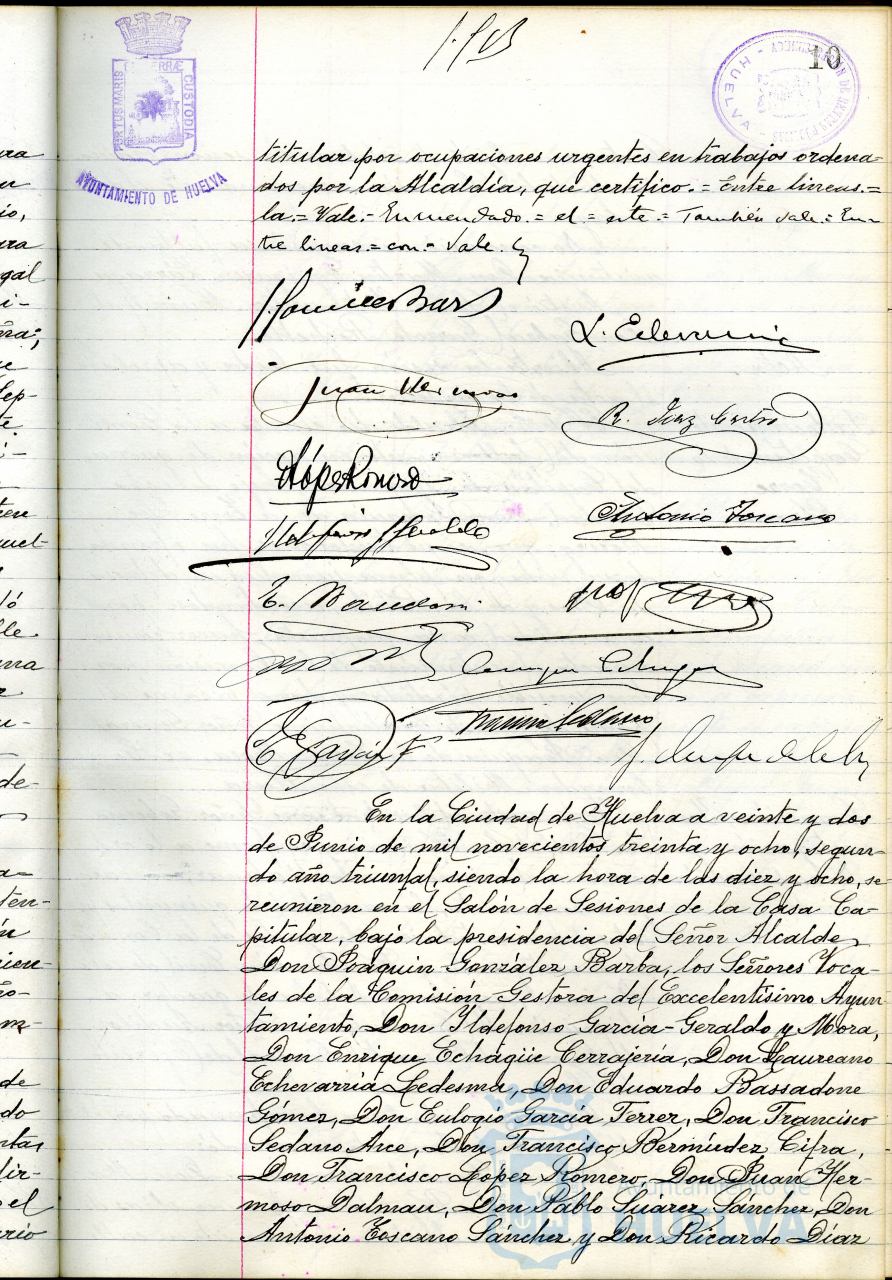 10
PORTUS MARIS ET TERRÆ CUSTODIA
AYUNTAMIENTO DE HUELVA
HUELVA
titular por ocupaciones urgentes en trabajos ordena-
dos por la Alcaldía, que certifico.= Entre lineas.=
la.= Vale.- Enmendado.= el = este = También vale.= En-
tre lineas.= con.= Vale.
L. Echevarria
Juan Hermoso
R. Diaz Castro
F. López Romero
Antonio Toscano
E. Bassadone
Enrique Echague
E. García F
Francisco Sedano
En la Ciudad de Huelva a veinte y dos
de Junio de mil novecientos treinta y ocho, segun-
do año triunfal, siendo la hora de las diez y ocho, se
reunieron en el Salón de Sesiones de la Casa Ca-
pitular, bajo la presidencia del Señor Alcalde,
Don Joaquin González Barba, los Señores Voca-
les de la Comisión Gestora del Excelentisimo Ayun-
tamiento, Don Ildefonso Garcia-Geraldo y Mora,
Don Enrique Echagüe Cerrajería, Don Laureano
Echevarria Ledesma, Don Eduardo Bassadone
Gómez, Don Eulogio Garcia Ferrer, Don Francisco
Sedano Arce, Don Francisco Bermúdez Cifra,
Don Francisco López Romero, Don Juan Her-
moso Dalmau, Don Pablo Suarez Sánchez, Don
Antonio Toscano Sánchez y Don Ricardo Díaz
Ayuntamiento de
HUELVA